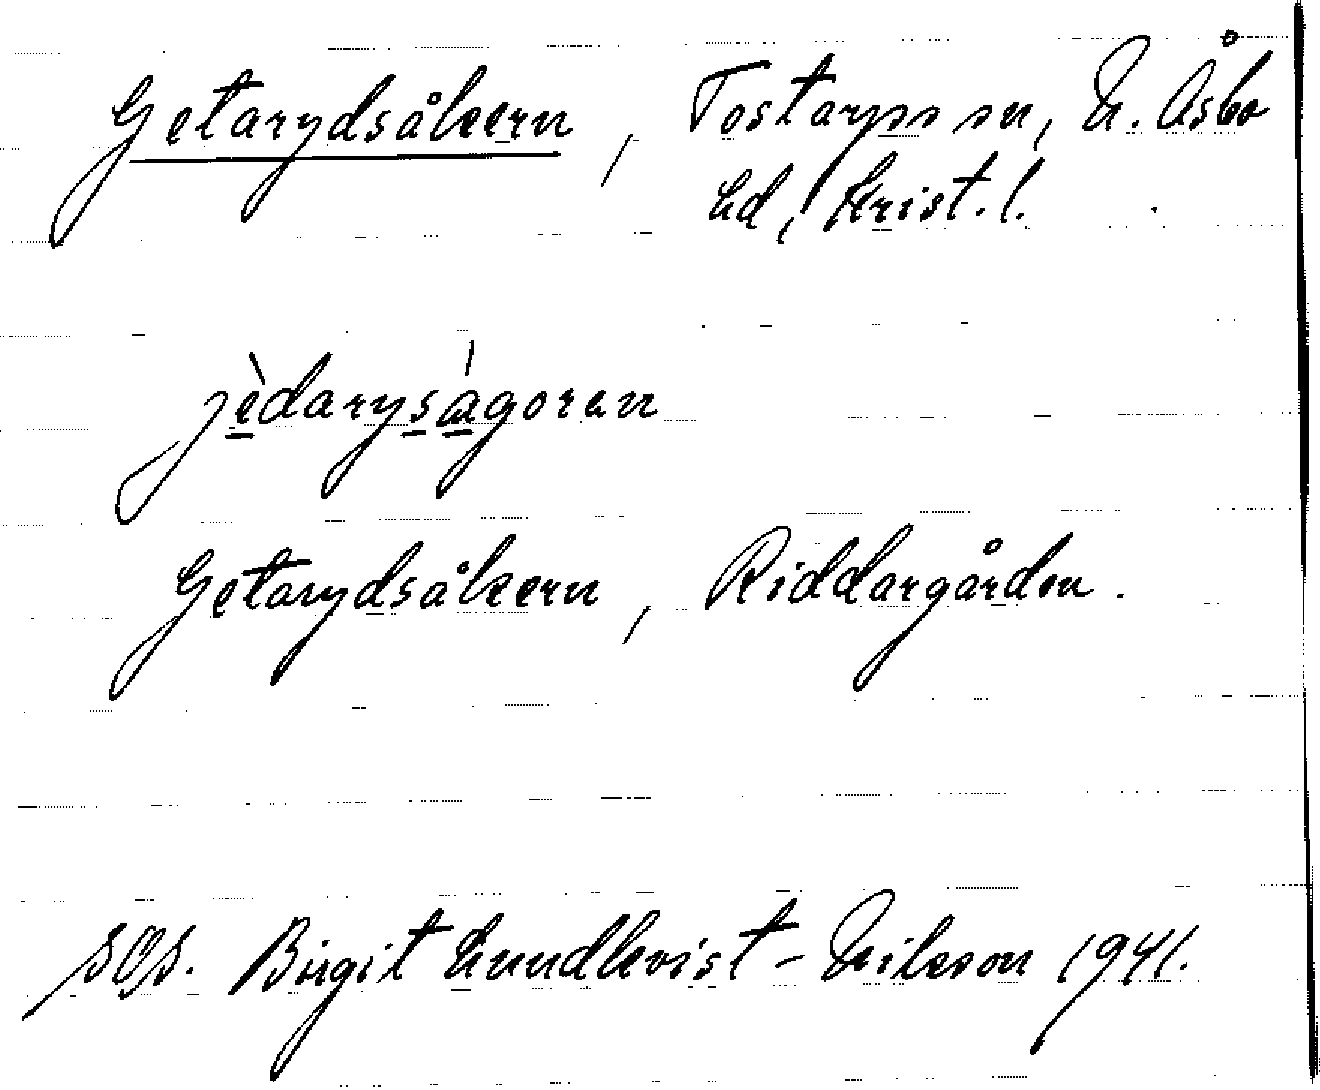 Getarydsåkern, Tostarps sn, N. Åsbo
hd, Krist. l.
jèdaryságoren
Getarydsåkern, Riddargården.
Birgit Lundkvist-Nilsson 1941.